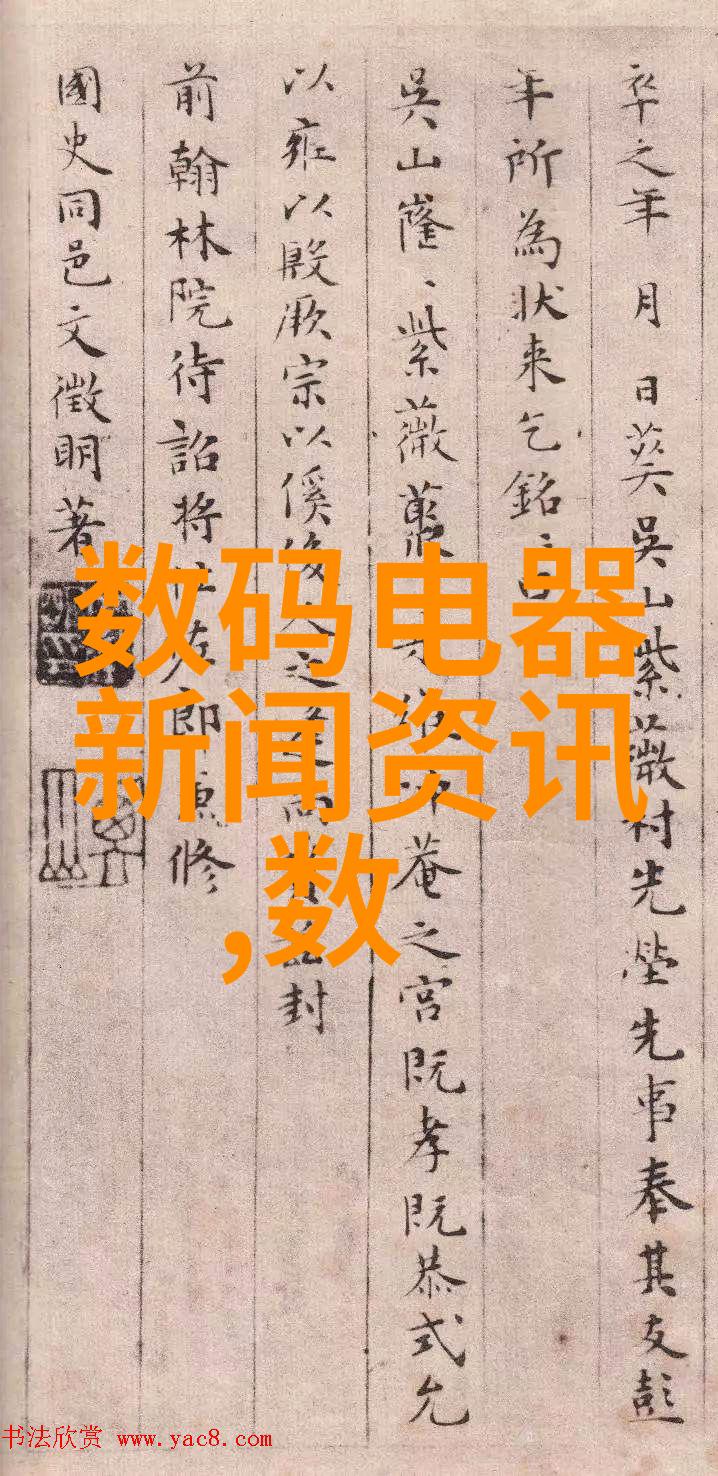 卒之年 月 日葬吳山紫薇村先塋先事奉其友彭
年所為狀来乞銘
吳山嶐、紫薇
菴之宮既孝既恭式允
以雍以殷厥宗以傒後人之
封
前翰林院待詔將仕佐郎兼修
國史同邑文徵明著
数码电器
新闻资讯
,数
书法欣赏 www.yac8.com